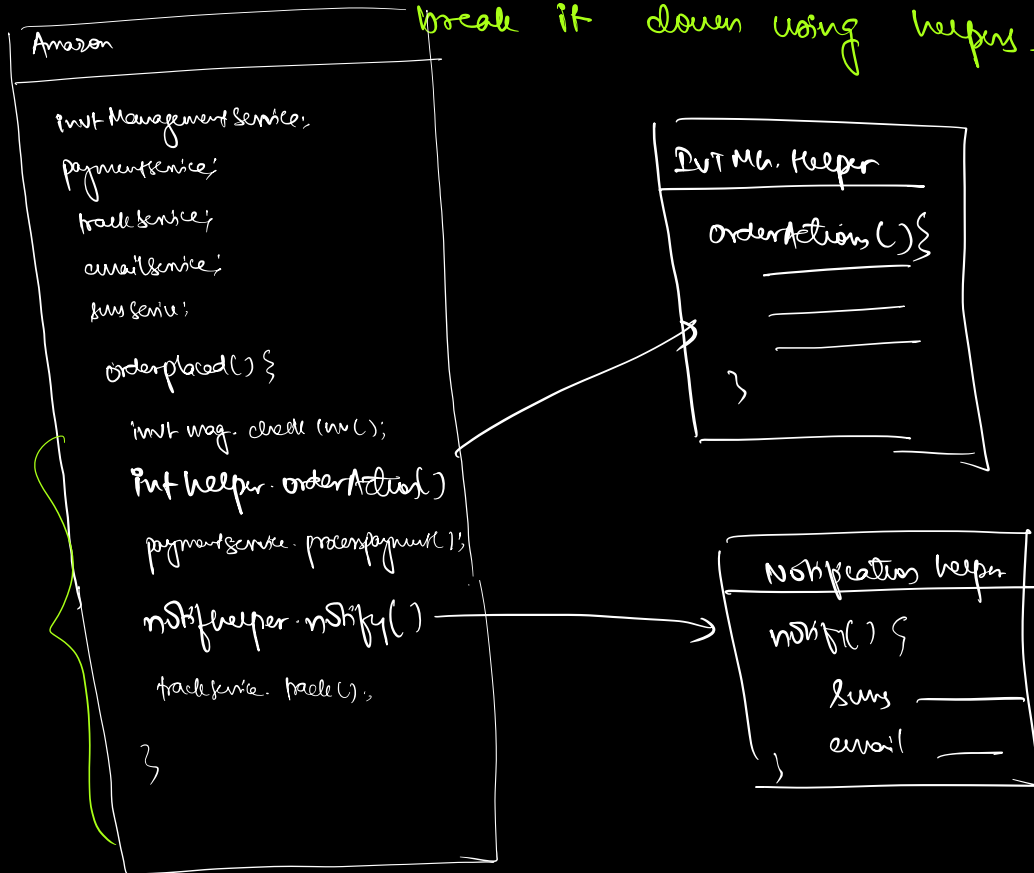 break it down using helpers.
Amazon
invt Management Service;
paymentservice;
trackservice;
emailservice;
sms servic;
orderplaced() {
invt mag. check inv();
invt helper. orderAction()
paymentservice. processpayment();
notifhelper. notify()
trackservice. track();
}
IVT MG. Helper
orderActions () {
}
Notification helper
notify() {
Sms
email
}